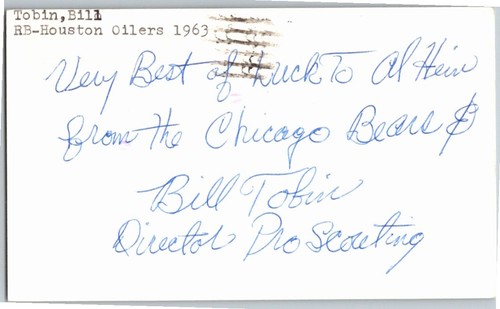 Tobin,Bill
RB-Houston Oilers 1963
Very Best of Luck To Al Hein
from the Chicago Bears &
Bill Tobin
Director Pro Scouting